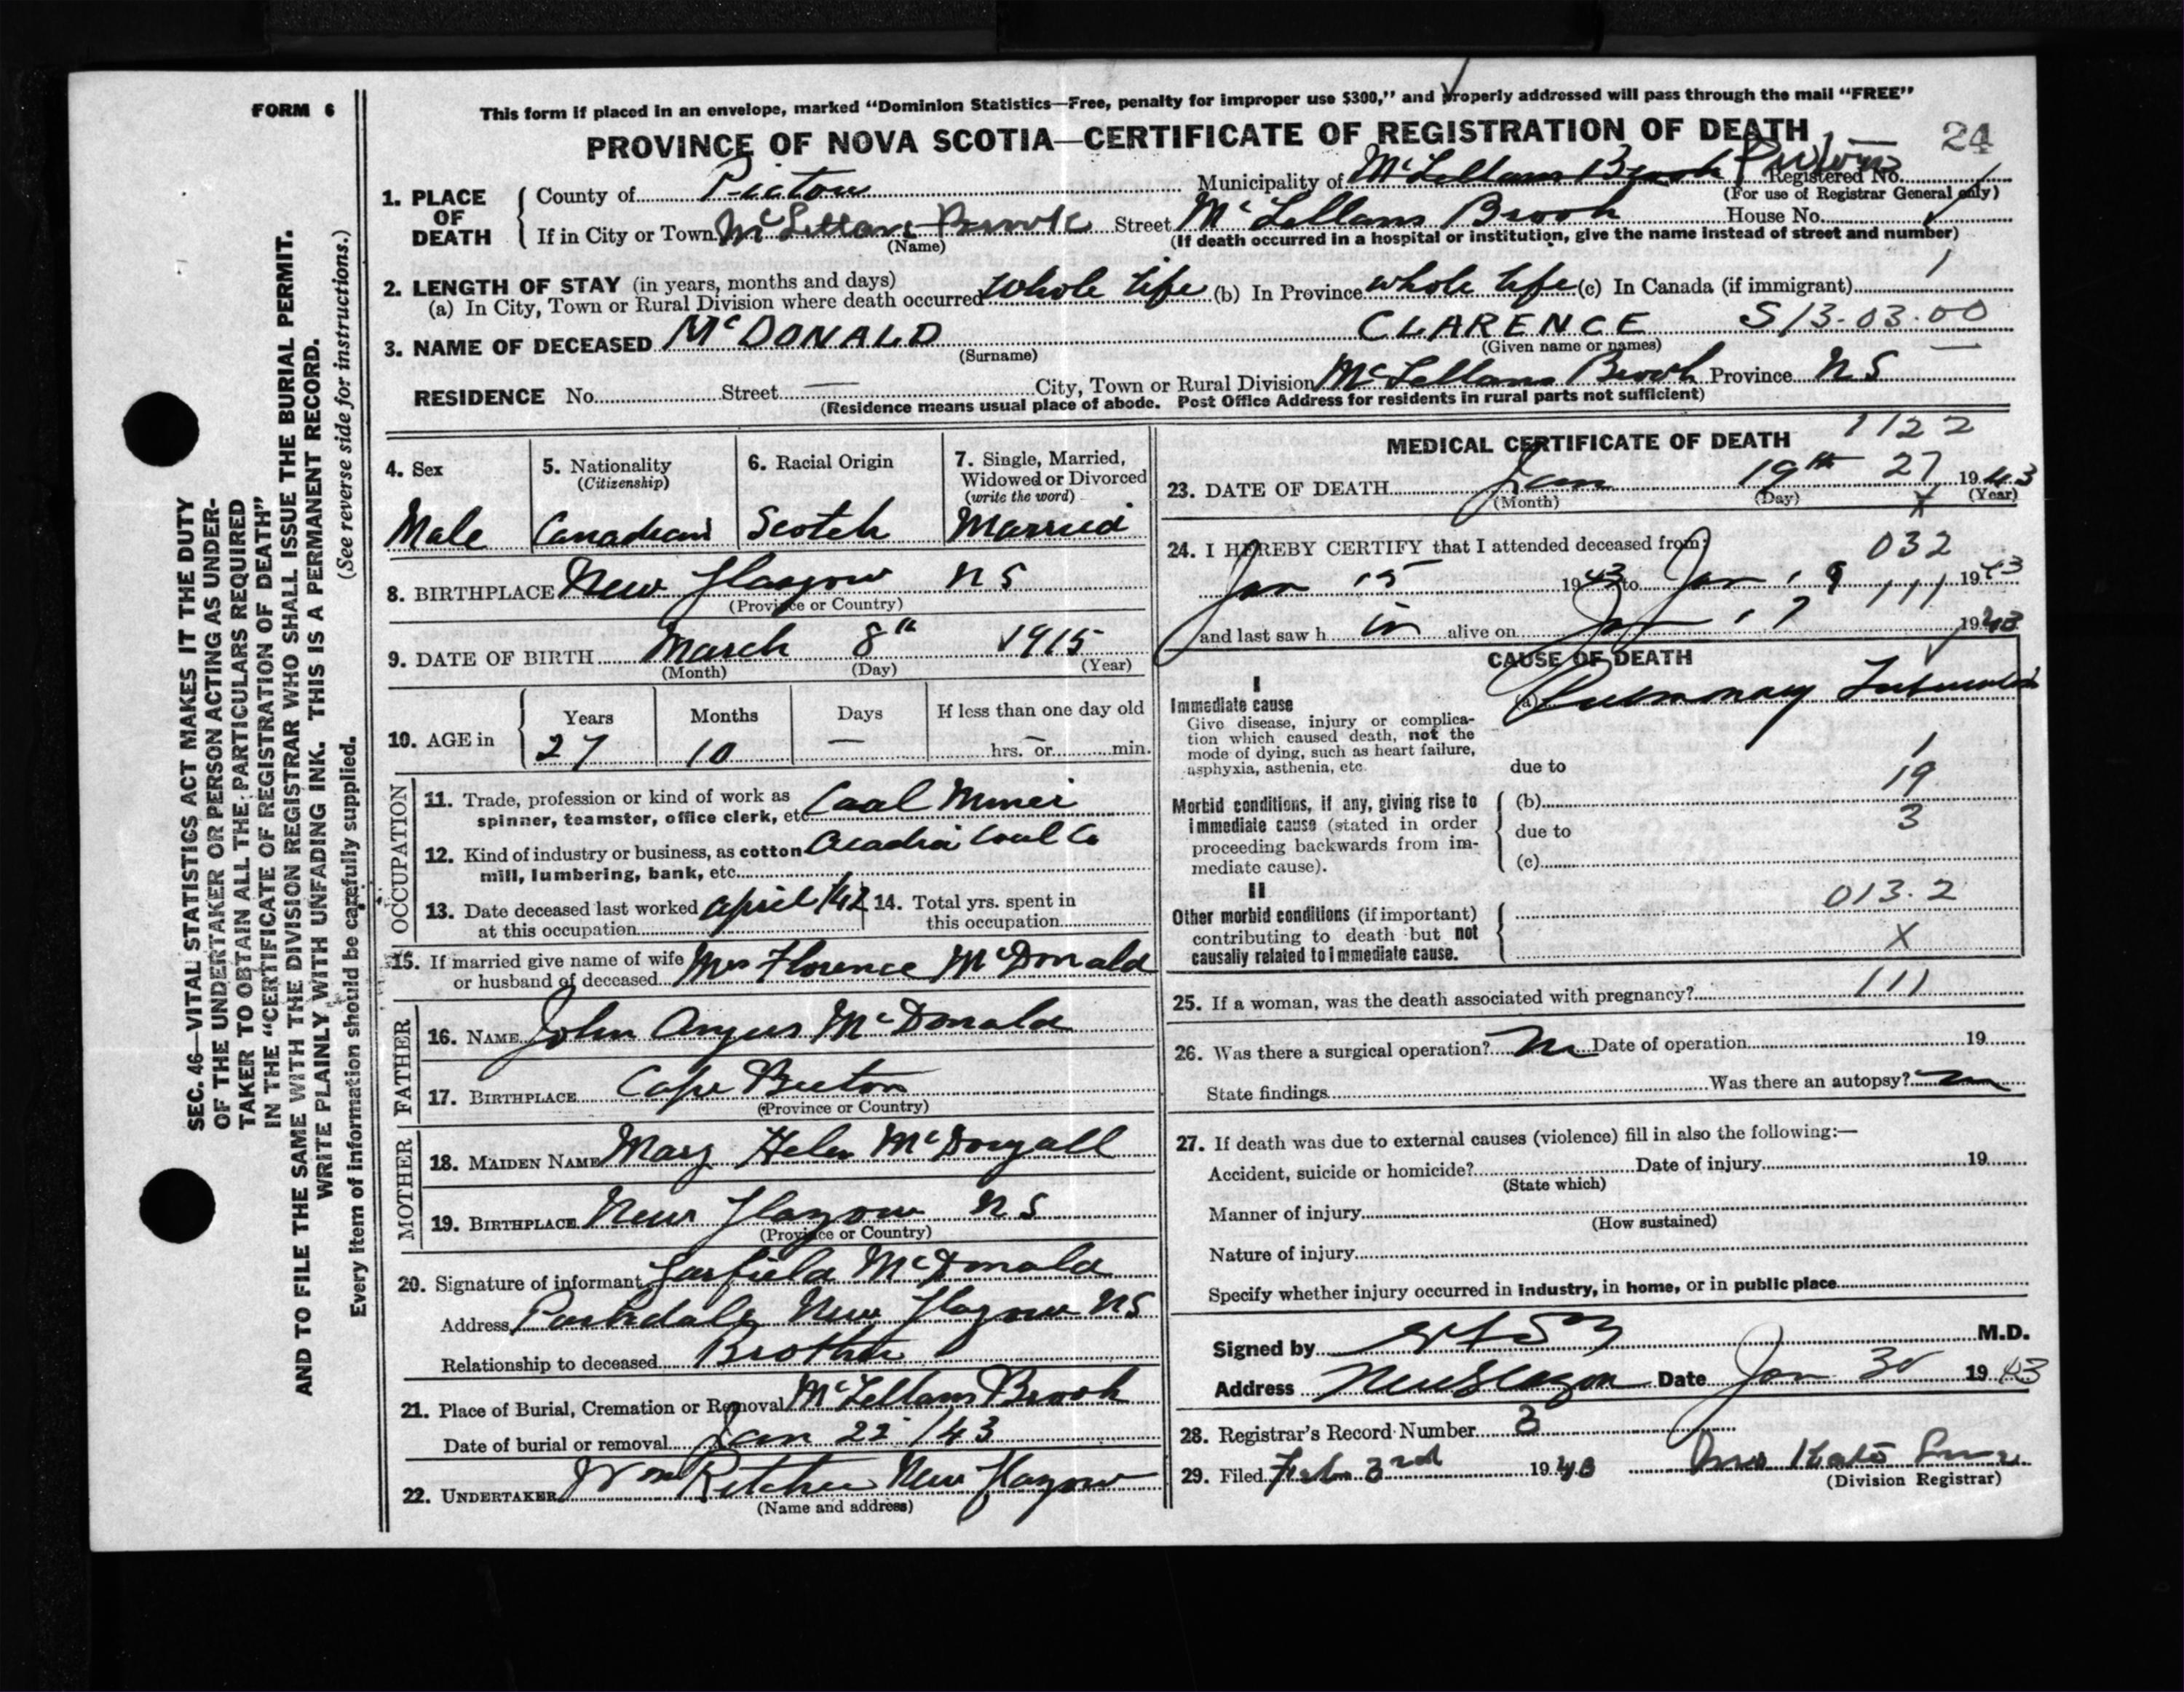 FORM 6
This form if placed in an envelope, marked “Dominion Statistics—Free, penalty for improper use $300,” and properly addressed will pass through the mail “FREE”
PROVINCE OF NOVA SCOTIA—CERTIFICATE OF REGISTRATION OF DEATH
24
1. PLACE OF DEATH
County of Pictou Municipality of McLellans Brook Registered No.
(For use of Registrar General only)
If in City or Town McLellans Brook Street McLellans Brook House No.
(Name) (If death occurred in a hospital or institution, give the name instead of street and number)
2. LENGTH OF STAY (in years, months and days)
(a) In City, Town or Rural Division where death occurred whole life (b) In Province whole life (c) In Canada (if immigrant) 1
3. NAME OF DECEASED McDONALD CLARENCE S13-03.00
(Surname) (Given name or names)
RESIDENCE No. Street — City, Town or Rural Division McLellans Brook Province NS
(Residence means usual place of abode. Post Office Address for residents in rural parts not sufficient)
4. Sex
Male
5. Nationality
(Citizenship)
Canadian
6. Racial Origin
Scotch
7. Single, Married, Widowed or Divorced
(write the word)
Married
8. BIRTHPLACE New Glasgow NS
(Province or Country)
9. DATE OF BIRTH March 8th 1915
(Month) (Day) (Year)
10. AGE in
Years Months Days If less than one day old
27 10 — hrs. or min.
OCCUPATION
11. Trade, profession or kind of work as Coal Miner
spinner, teamster, office clerk, etc
12. Kind of industry or business, as cotton Acadia Coal Co
mill, lumbering, bank, etc.
13. Date deceased last worked April/42 14. Total yrs. spent in
at this occupation this occupation
15. If married give name of wife Mrs Florence McDonald
or husband of deceased
FATHER
16. NAME John Angus McDonald
17. BIRTHPLACE Cape Breton
(Province or Country)
MOTHER
18. MAIDEN NAME Mary Helen McDougall
19. BIRTHPLACE New Glasgow NS
(Province or Country)
20. Signature of informant Garfield McDonald
Address Parkdale New Glasgow NS
Relationship to deceased Brother
21. Place of Burial, Cremation or Removal McLellans Brook
Date of burial or removal Jan 22/43
22. UNDERTAKER Wm Ritchie New Glasgow
(Name and address)
MEDICAL CERTIFICATE OF DEATH 1122
23. DATE OF DEATH Jan 19th 27 1943
(Month) (Day) (Year)
X
24. I HEREBY CERTIFY that I attended deceased from: 032
Jan 15 1943 to Jan 19 111 1943
and last saw h im alive on Jan 17 1943
CAUSE OF DEATH
I
Immediate cause
Give disease, injury or complication which caused death, not the mode of dying, such as heart failure, asphyxia, asthenia, etc.
(a) Pulmonary Tuberculosis
due to 1
Morbid conditions, if any, giving rise to immediate cause (stated in order proceeding backwards from immediate cause).
(b) 19
due to 3
(c)
II
Other morbid conditions (if important) contributing to death but not causally related to immediate cause.
013.2
X
25. If a woman, was the death associated with pregnancy? 111
26. Was there a surgical operation? No Date of operation 19
State findings Was there an autopsy? No
27. If death was due to external causes (violence) fill in also the following:—
Accident, suicide or homicide? Date of injury 19
(State which)
Manner of injury
(How sustained)
Nature of injury
Specify whether injury occurred in industry, in home, or in public place
Signed by M.D.
Address New Glasgow Date Jan 30 1943
28. Registrar's Record Number 3
29. Filed Feb 3rd 1943 Mrs Kate
(Division Registrar)
SEC. 46—VITAL STATISTICS ACT MAKES IT THE DUTY
OF THE UNDERTAKER OR PERSON ACTING AS UNDER-
TAKER TO OBTAIN ALL THE PARTICULARS REQUIRED
IN THE “CERTIFICATE OF REGISTRATION OF DEATH”
AND TO FILE THE SAME WITH THE DIVISION REGISTRAR WHO SHALL ISSUE THE BURIAL PERMIT.
WRITE PLAINLY WITH UNFADING INK. THIS IS A PERMANENT RECORD.
(See reverse side for instructions.)
Every item of information should be carefully supplied.